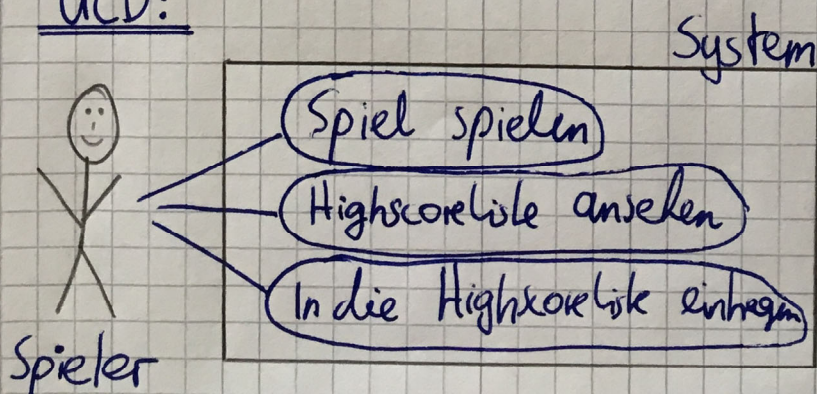 UCD:
System
Spiel spielen
Highscoreliste ansehen
In die Highscoreliste eintragen
Spieler